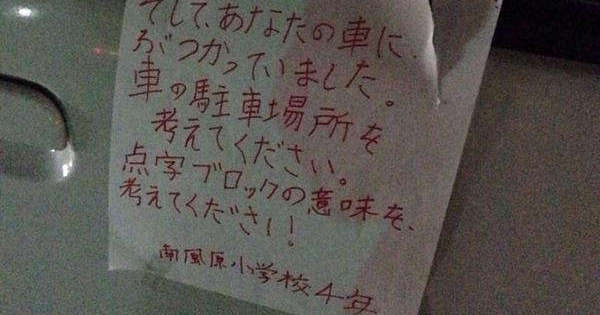 そして、あなたの車に、
ぶつかっていました。
車の駐車場所を
考えてください。
点字ブロックの意味を、
考えてください!
南風原小学校4年